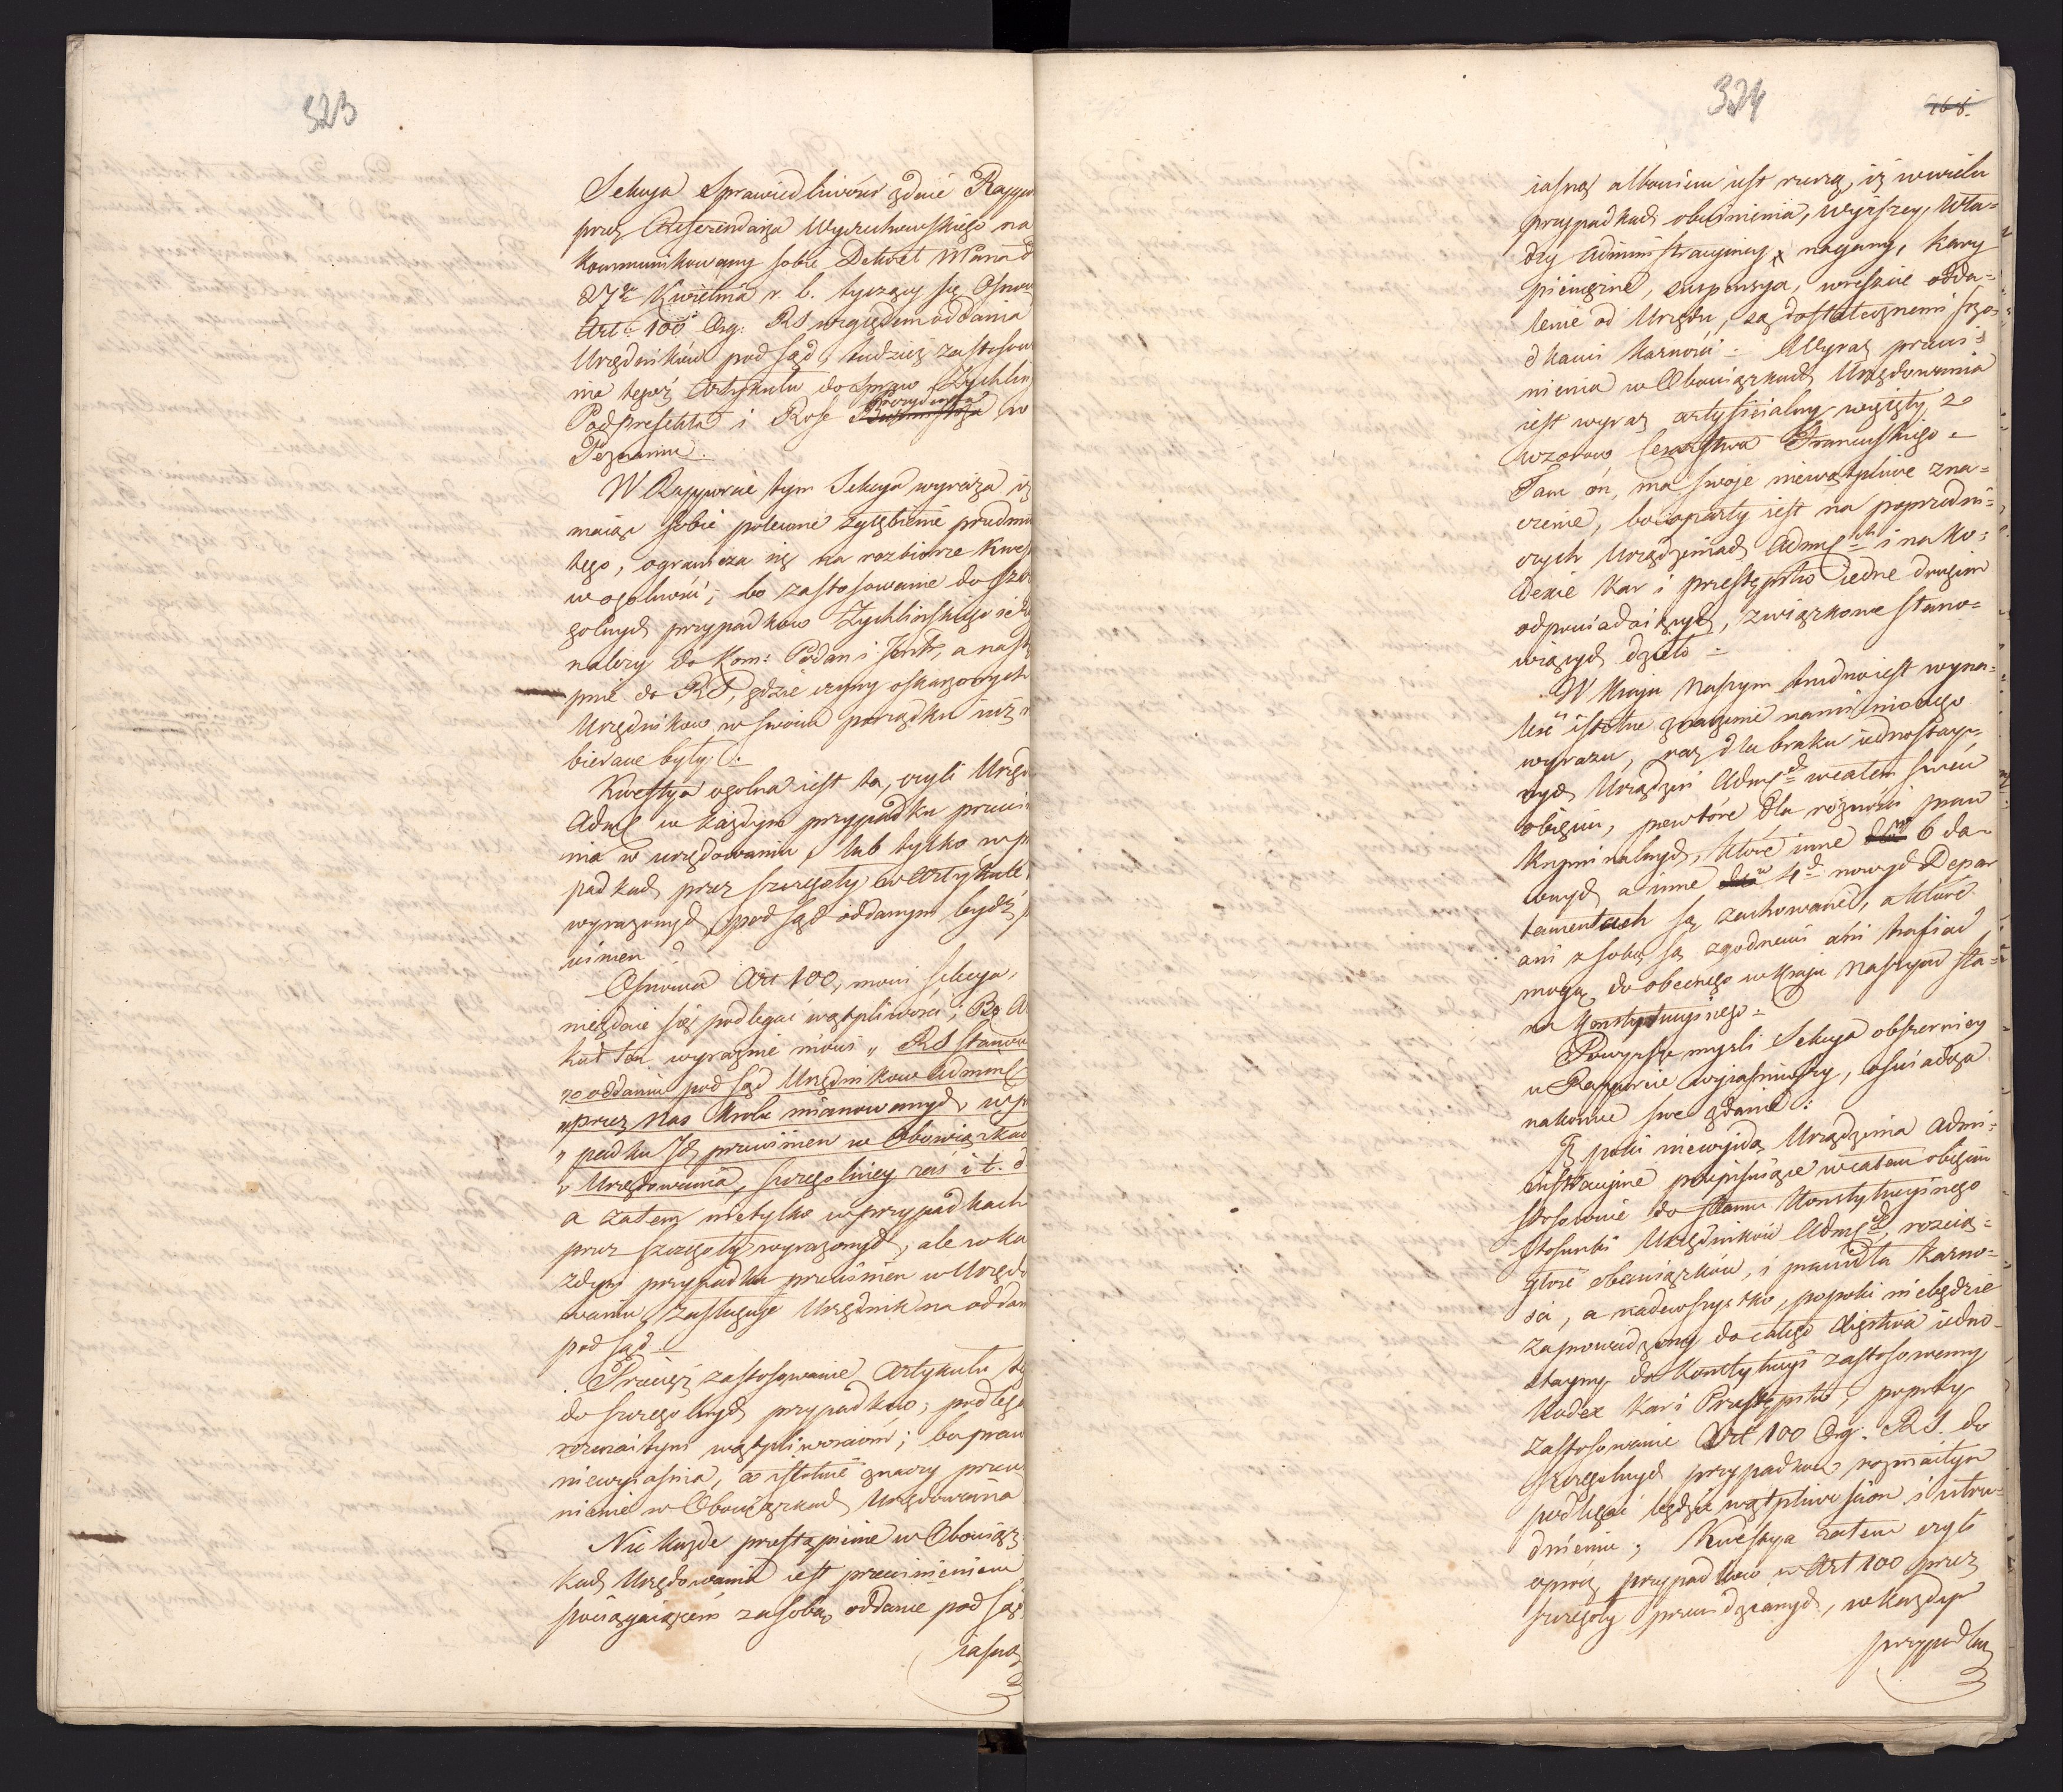 323
Sekcya Sprawiedliwości zdaie Rappor
przez Referendarza Wyczechowskiego na
kommunikowany sobie Dekret WPana d
27go Kwietnia r. b. tyczący się Osnow
Art: 100 Org: RS względem oddania
Urzędników pod Sąd, tudzież zastosow
nia tegoż Artykułu do Spraw Zychliń
Podprefekta i Rose Prezydenta w
Poznaniu.
W Rapporcie tym Sekcya wyraża iż
maiąc sobie polecone zgłębienie przedmio
tego, ogranicza się na rozbiorze kwes
w ogolności; bo zastosowanie do szcze
golnych przypadkow Zychlińskiego i R
należy do Kom: Podan i Instr, a nastę
pnie do RS, gdzie czyny oskarzonych
Urzędnikow w swoim porządku iuż
bierane były.
Kwestya ogolna iest ta, czyli Urzęd
Adms w każdym przypadku przewi
nia w urzędowaniu, lub tylko w pr
padkach przez szczegoły w Artykule
wyrażonych pod sąd oddanym bydź p
winien
Osnowa Art 100, mowi Sekcya,
niezdaie się podlegać wątpliwości; Bo A
kuł ten wyraźnie mowi „ RS stanow
„o oddaniu pod Sąd Urzędnikow Adminis
„przez Nas Krola mianowanych w p
„ padku Ich przewinien w Obowiązkac
„ Urzędowania, szczegolniey zaś i t. d
a zatem nietylko w przypadkach
przez szczegoły wyrażonych, ale w ka
żdym przypadku przewinien w Urzędo
waniu, zasługuje Urzędnik na oddan
pod sąd.
Przecięż zastosowanie Artykułu te
do szczegolnych przypadkow, podlega
rozmaitym wątpliwościom; bo praw
niewyiasnia, co istotnie znaczy przew
nienie w Obowiązkach Urzędowania
Nie każde przestąpienie w Obowiąz
kach Urzędowania iest przewinieniem
pociągaiącem za sobą, oddanie pod sąd
iasną
324
168.
iasną albowiem iest rzeczą, iż w wielu
przypadkach obwinienia, wyższey, Wła=
dzy administracyiney, nagany, kary
pieniężne, suspensya, wreszcie odda=
lenie od Urzędu, są dostatecznemi szro=
dkami karności = Wyraz przewi=
nienia w Obowiązkach Urzędowania
iest wyraz artyficialny wzięty ze
wzorow Cesarstwa Francuskiego =
Tam on, ma swoje niewątpliwe zna=
czenie, bo oparty iest na poprzedni=
czych Urządzeniach Admsch i na ko=
dexie kar i przestępstw iedne drugim
odpowiadaiących, związkowe stano=
wiących dzieło =
W Kraju Naszym trudno iest wyna=
leść istotne znaczenie namienionego
wyrazu, raz dla braku iednostay=
nych Urządzeń Admsch w całem swém
obięciu, powtóre dla różności praw
kryminalnych, które inne w 6 da=
wnych a inne w 4ch nowych Depar
tamentach są zachowane, a które
ani z sobą są zgodnemi ani trafiać
mogą do obecnego w Kraju Naszym sta=
nu Konstytucyinego =
Powyższe mysli Sekcya obszerniey
w Rapporcie wyiasniwszy, oświadcza
nakoniec swe zdanie:
Iż poki niewyidą Urządzenia admi=
nistracyine przepisuiące w całem obięciu
stosownie do stanu Konstytucyinego
stosunki Urzędników Admsch, rozcią=
głość obowiązków, i prawidła karno=
ści, a nadewszystko, popoki niebędzie
zaprowadzony do całego Xięstwa iedno=
stayny do Konstytucyi zastosowany
Kodex kar i Przestępstw, popoty
zastosowanie Art 100 Org: RS. do
szczegolnych przypadkow rozmaitym
podlegać będzie wątpliwościom i utru=
dnieniu; Kwestya zatem czyli
oprócz przypadkow w Art 100 przez
szczegoły przewidzianych, w każdym
przypadku